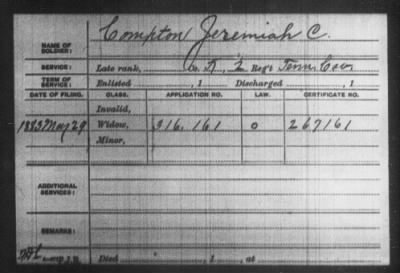 NAME OF SOLDIER: Compton Jeremiah C.
SERVICE: Late rank, Co. , 2 Reg't Tenn Cav
TERM OF SERVICE: Enlisted , 1 Discharged , 1
DATE OF FILING. CLASS. APPLICATION NO. LAW. CERTIFICATE NO.
Invalid,
1883 May 29 Widow, 316.161 0 267161
Minor,
ADDITIONAL SERVICES:
REMARKS:
Died , 1 , at